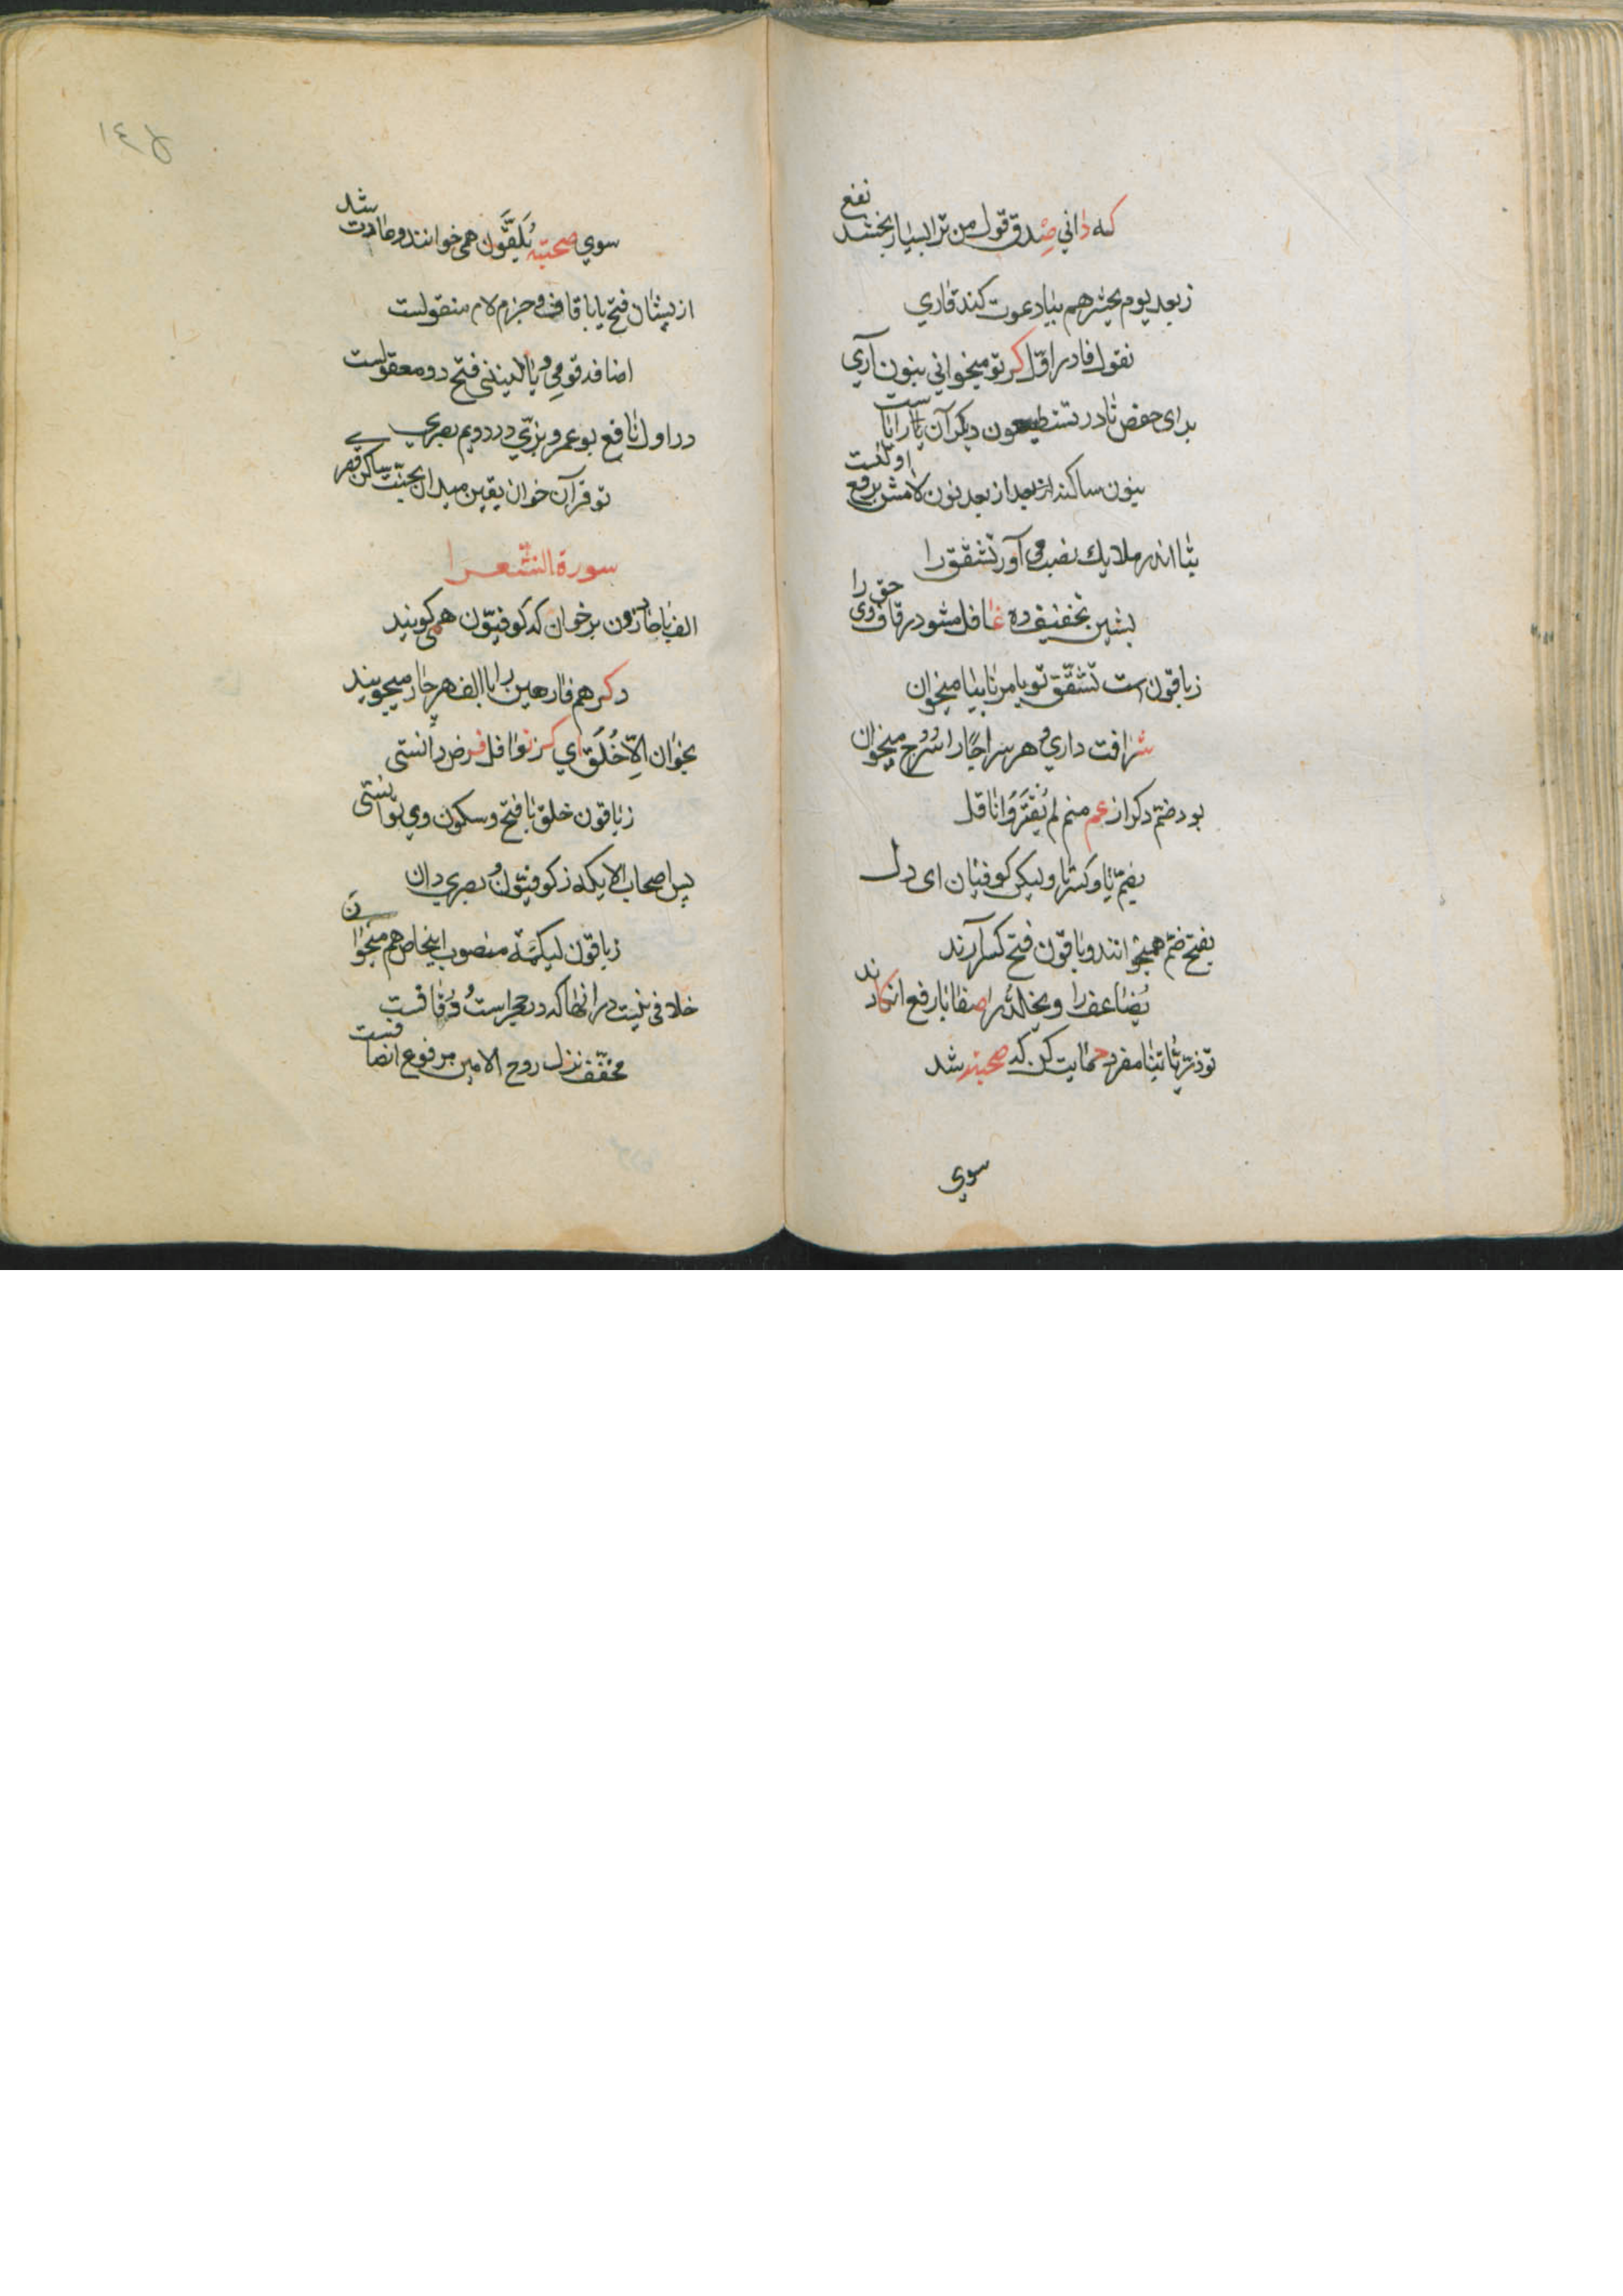 که دانی صدق قول من ترا بسیار بخشد نفع
ز بعد یوم یحشرهم بیا دعوت کند قاری
نقول فا در اول کر تو میخوانی بنون آری
برای حفص تا در تستطیعون دیکر آن یا را یا ست
بنون ساکنه از بعد از بعد نون لامش برفع اولست
بتا اندر ملایك نصب می آور تشقق را
بشین تخفیف ده غافل مشو در قاف وی حق را
ز باقون است تشقق تو یامرنا بیا میخوان
شرافت داری و هر سراجا را سرج میخوان
بود ضم دکر از عم منم لم یقتروا ناقل
بضم یا و کسر تا ولیکن کوفیان ای دل
بفتح ضم همیخوانند و باقون فتح کسر آرند
یضاعف را و یخلد را صفا با رفع انکارند
تو ذریاتنا مفرد حمایت کن که صحبته شد
سوی
۱۴۵
سوی صحبته یلقون همی خوانند و عادت شد
از یشان فتح یا با قاف و جزم لام منقولست
اضافه قومی و یا لیتنی فتح دو معقولست
در اول نافع بو عمرو بزی در دویم بصری
تو قرآن خوان یقین میدان بجنت ساکن قصری
سورة الشعرا
الف با حاذرون بر خوان که کوفیون همی کویند
دکر هم فارهین را با الف هر چار میجویند
بخوان الا خلق ای کز نوافل فرض دانستی
ز باقون خلق با فتح و سکون وی توانستی
پس اصحاب الایکه ز کوفیون و بصری دان
ز باقون لیکه منصوب اینجا ص هم میخوان
خلافی نیست در انها که در حجر است و قافست
مخفف نزل روح الامین مرفوع انصافست